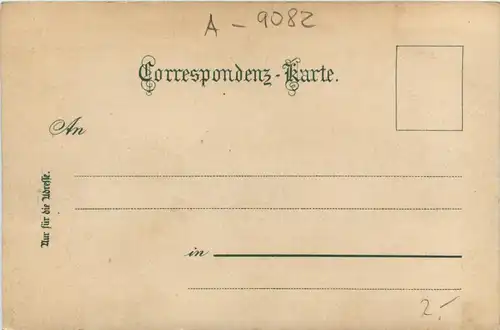 A - 9082
Correspondenz-Karte.
An
Nur für die Adresse.
in
2.-